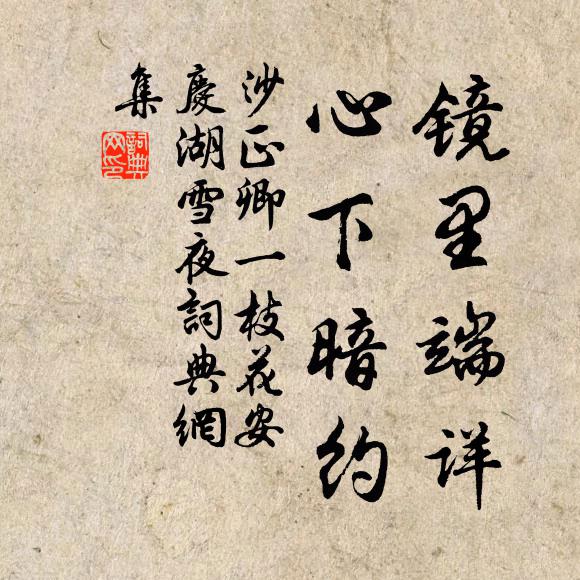 镜里端详
心下暗约
沙正卿一枝花安
慶湖雪夜詞典網
集
詞典
网印